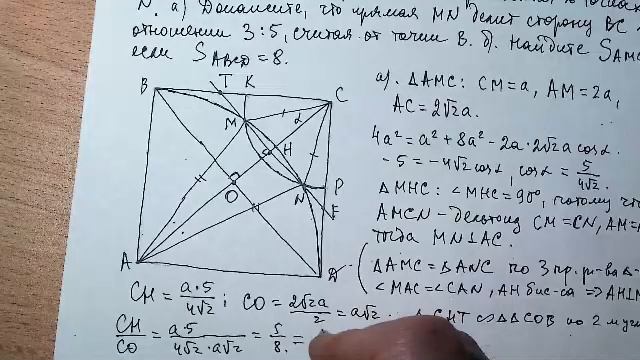 N. а) Докажите, что прямая MN делит сторону BC
отношении 3:5, считая от точки B. б) Найдите S AMC
если S ABCD = 8.
B T K C
M α
H
O N P
F
A D
а). △AMC: CM=a, AM=2a,
AC=2√2a.
4a²=a²+8a²-2a·2√2a cosα.
-5=-4√2 cosα, cosα=5/4√2.
△MHC: ∠MHC=90°, потому что
AMCN-дельтоид CM=CN, AM=
тогда MN⊥AC.
△AMC=△ANC по 3 пр. р-ва △-
∠MAC=∠CAN, AH бис-са ⇒ AH⊥
CH=a·5/4√2; CO=2√2a/2=a√2. △CHT∽△COB по 2
CH/CO=a·5/4√2·a√2=5/8.=